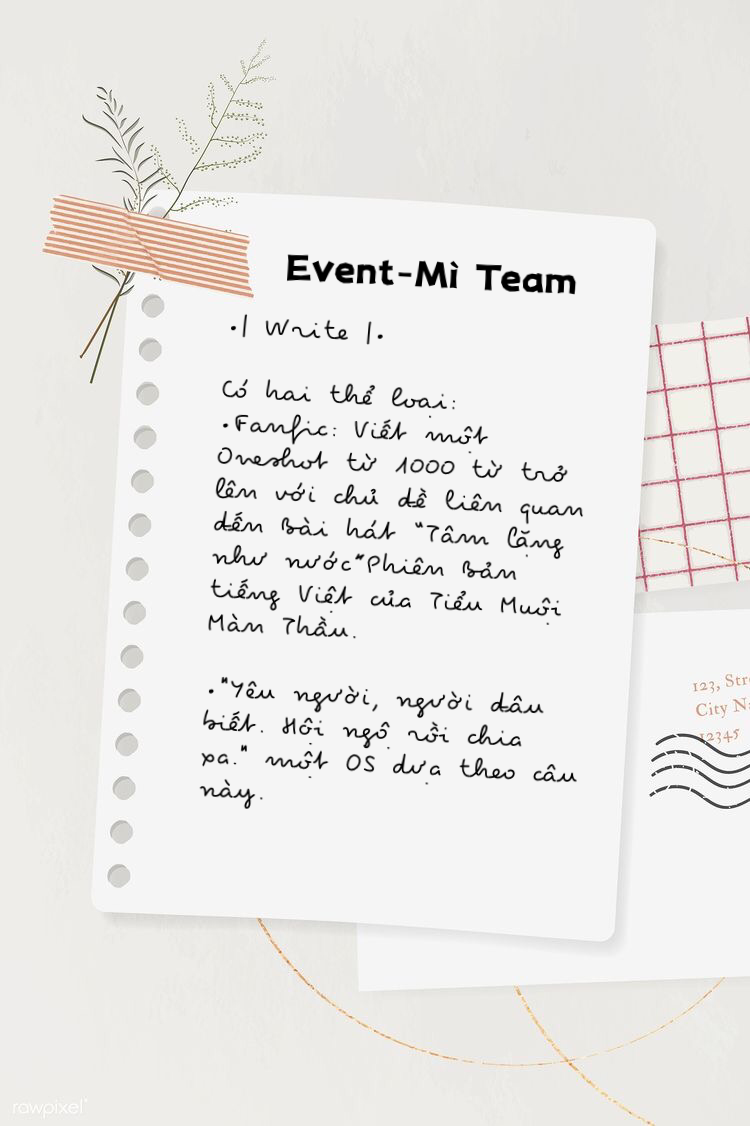 Event-Mì Team
•| Write |•
Có hai thể loại:
•Fanfic: Viết một
Oneshot từ 1000 từ trở
lên với chủ đề liên quan
đến Bài hát "Tâm lặng
như nước"Phiên Bản
tiếng Việt của Tiểu Muội
Màn Thầu.
•"Yêu người, người đâu
biết. Hội ngộ rồi chia
xa." một OS dựa theo câu
này.
123, Stre
City Na
12345
rawpixel